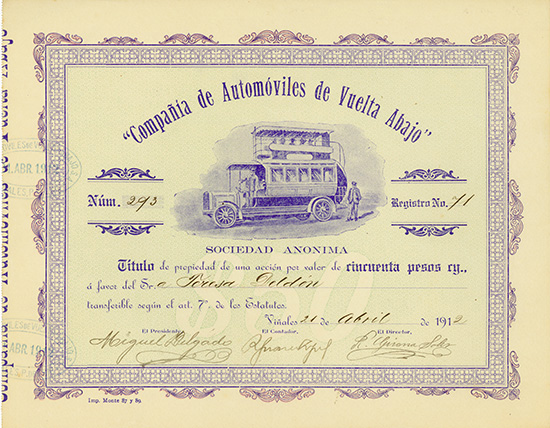 "Compañia de Automóviles de Vuelta Abajo"
Núm. 293
Registro No. 71
SOCIEDAD ANONIMA
Título de propiedad de una acción por valor de cincuenta pesos cy.,
á favor del Sr.a Teresa
transferible según el art. 7º de los Estatutos.
Viñales 21 de Abril de 1912
El Presidente,
El Contador,
El Director,
Miguel Delgado
Imp. Monte 87 y 89.
ABR 19
ABR 19